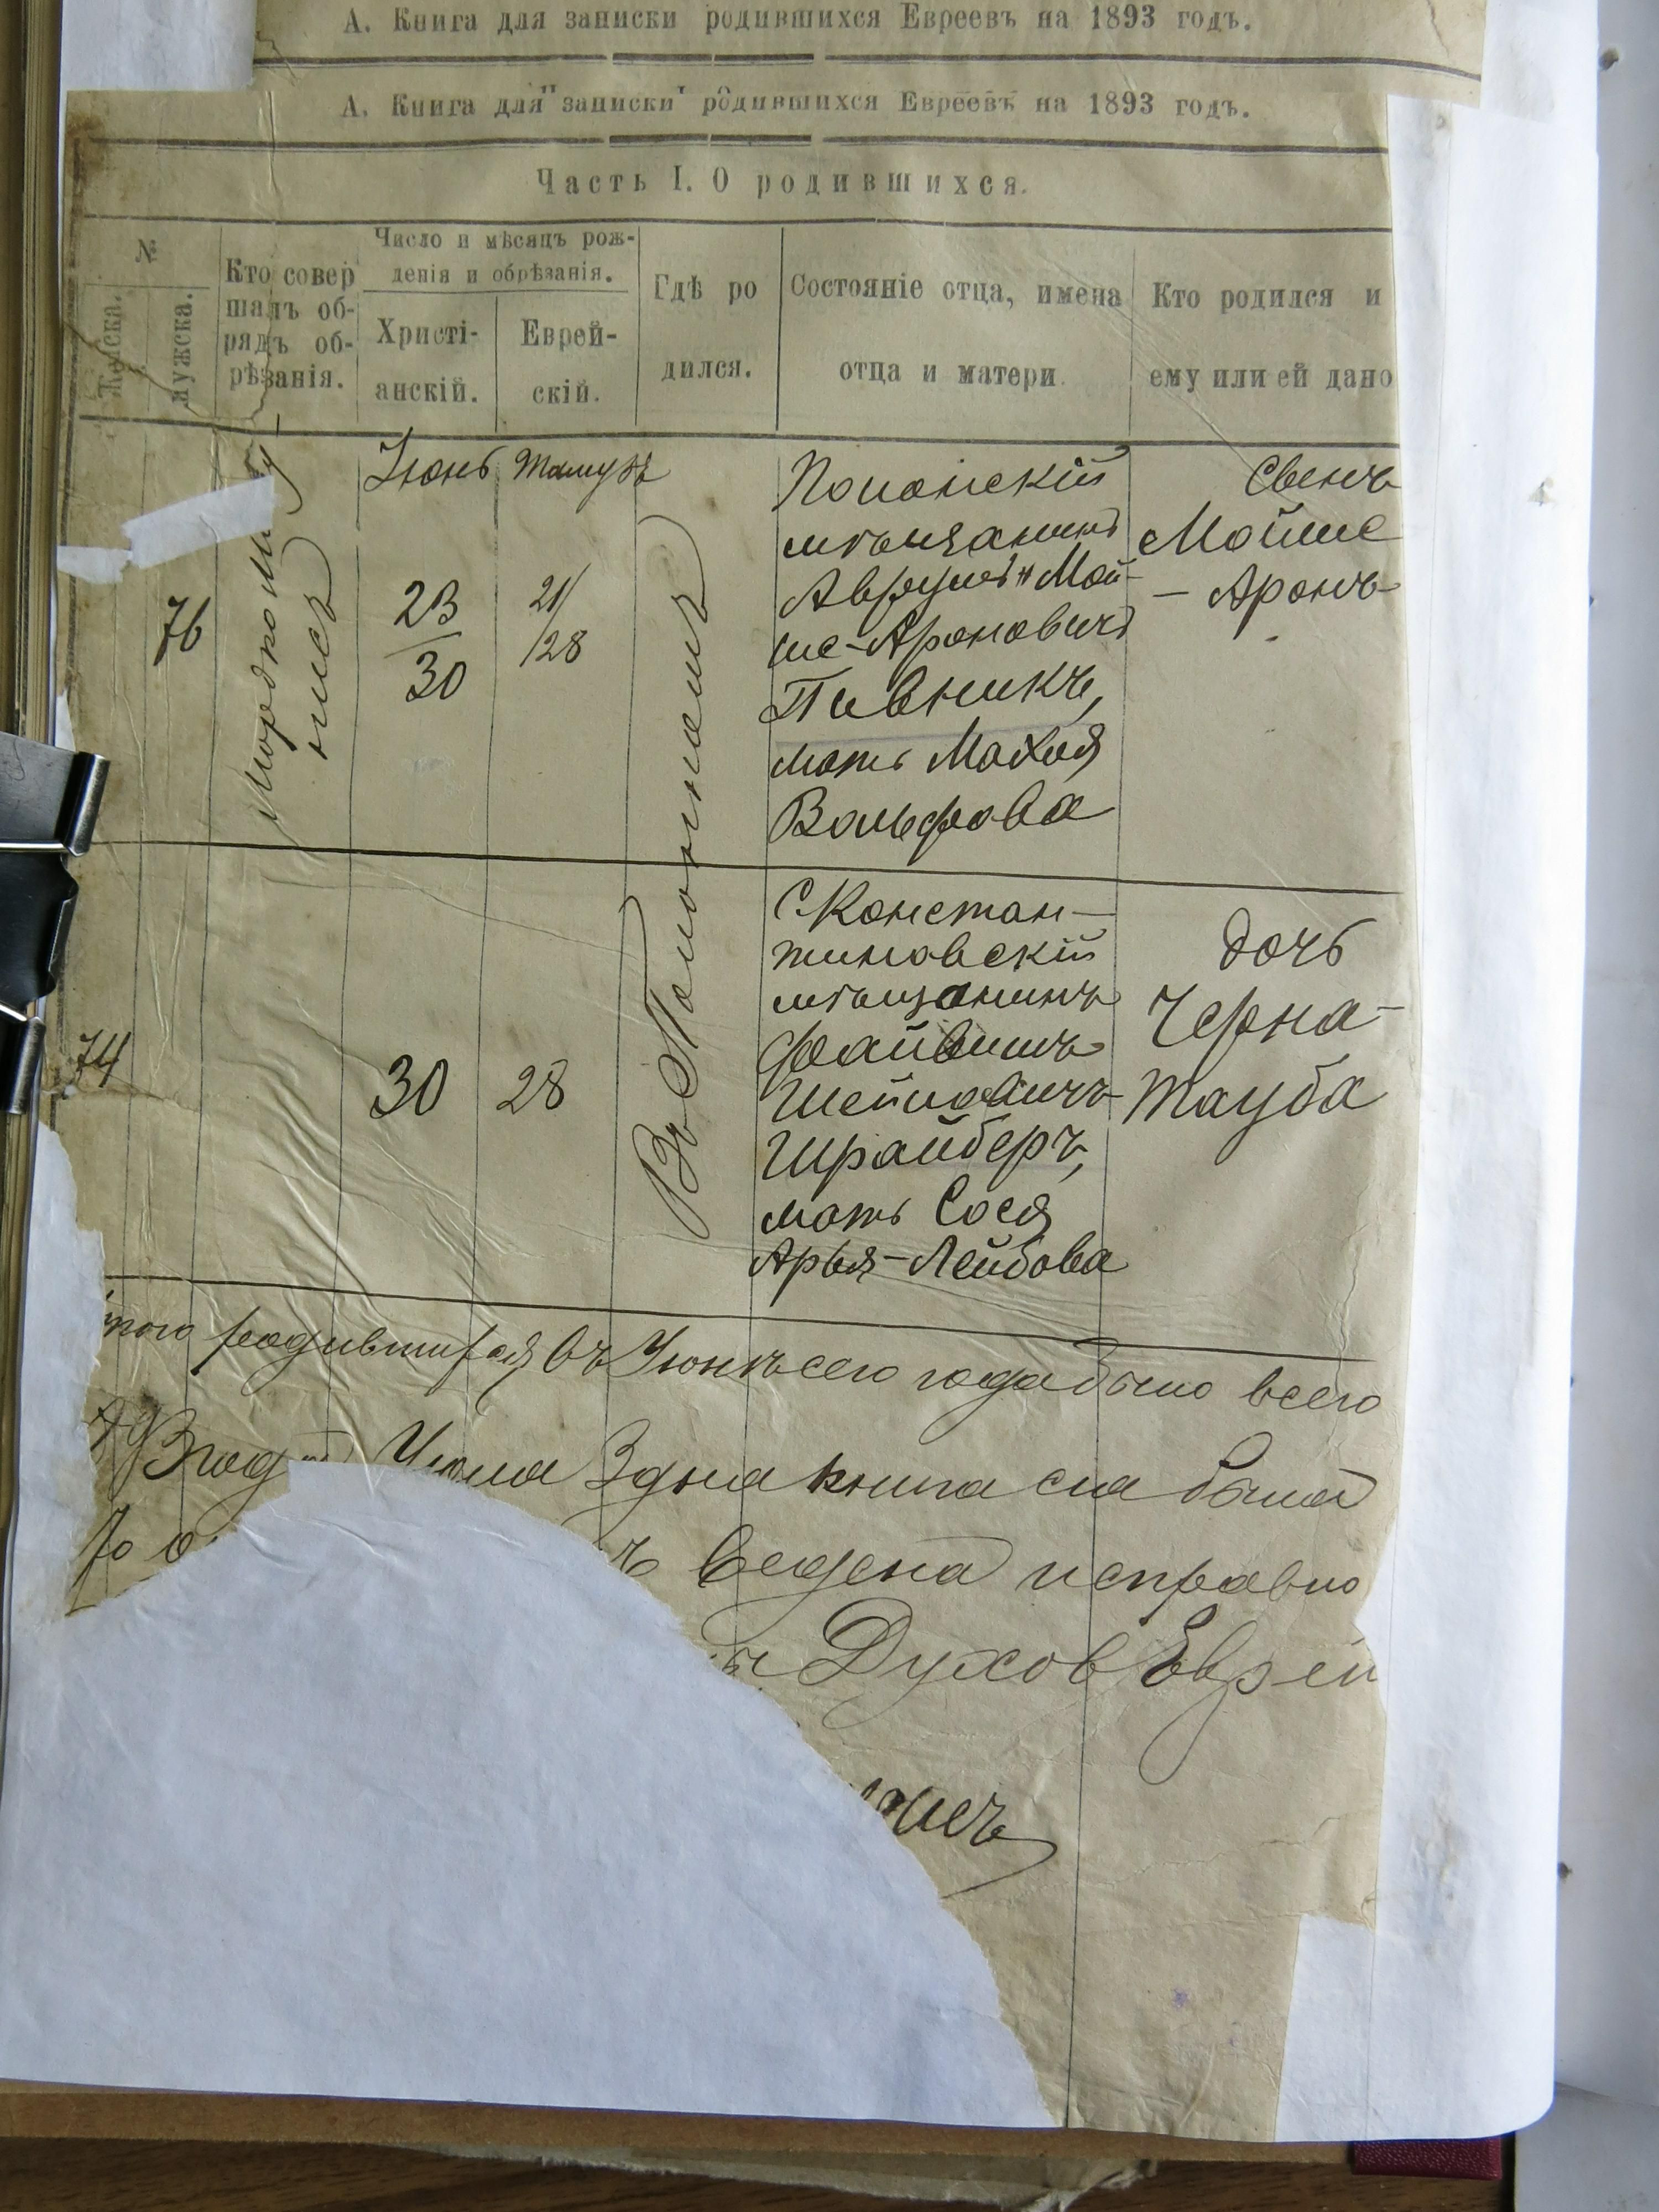 А. Книга для записки родившихся Евреевъ на 1893 годъ.
А. Книга для записки родившихся Евреевъ на 1893 годъ.
Часть I. О родившихся.
№
Женска.
Мужска.
Кто совер
шалъ об-
рядъ об-
рѣзанія.
Число и мѣсяцъ рож-
денія и обрѣзанія.
Христі-
анскій.
Еврей-
скій.
Гдѣ ро
дился.
Состояніе отца, имена
отца и матери.
Кто родился и
ему или ей дано
76
Мордко
Июнь
23
30
Тамузъ
21/
/28
Въ Полонномъ
Полонскій
мѣщанинъ
Аврумъ Мой-
ше-Ароновичъ
Пивникъ,
мать Махля
Вольфова
Свинъ
Мойше
- Аронъ-
74
30
28
С.Констан-
тиновскій
мѣщанинъ
Файвишъ
Шейлович-
Шрайберъ,
мать Сося
Арья-Лейбова
дочь
Черна-
Тауба
родившихся въ Июнѣ сего года было всего
Июля 3 дня книга сия была
ведена исправно
Духов Еврей